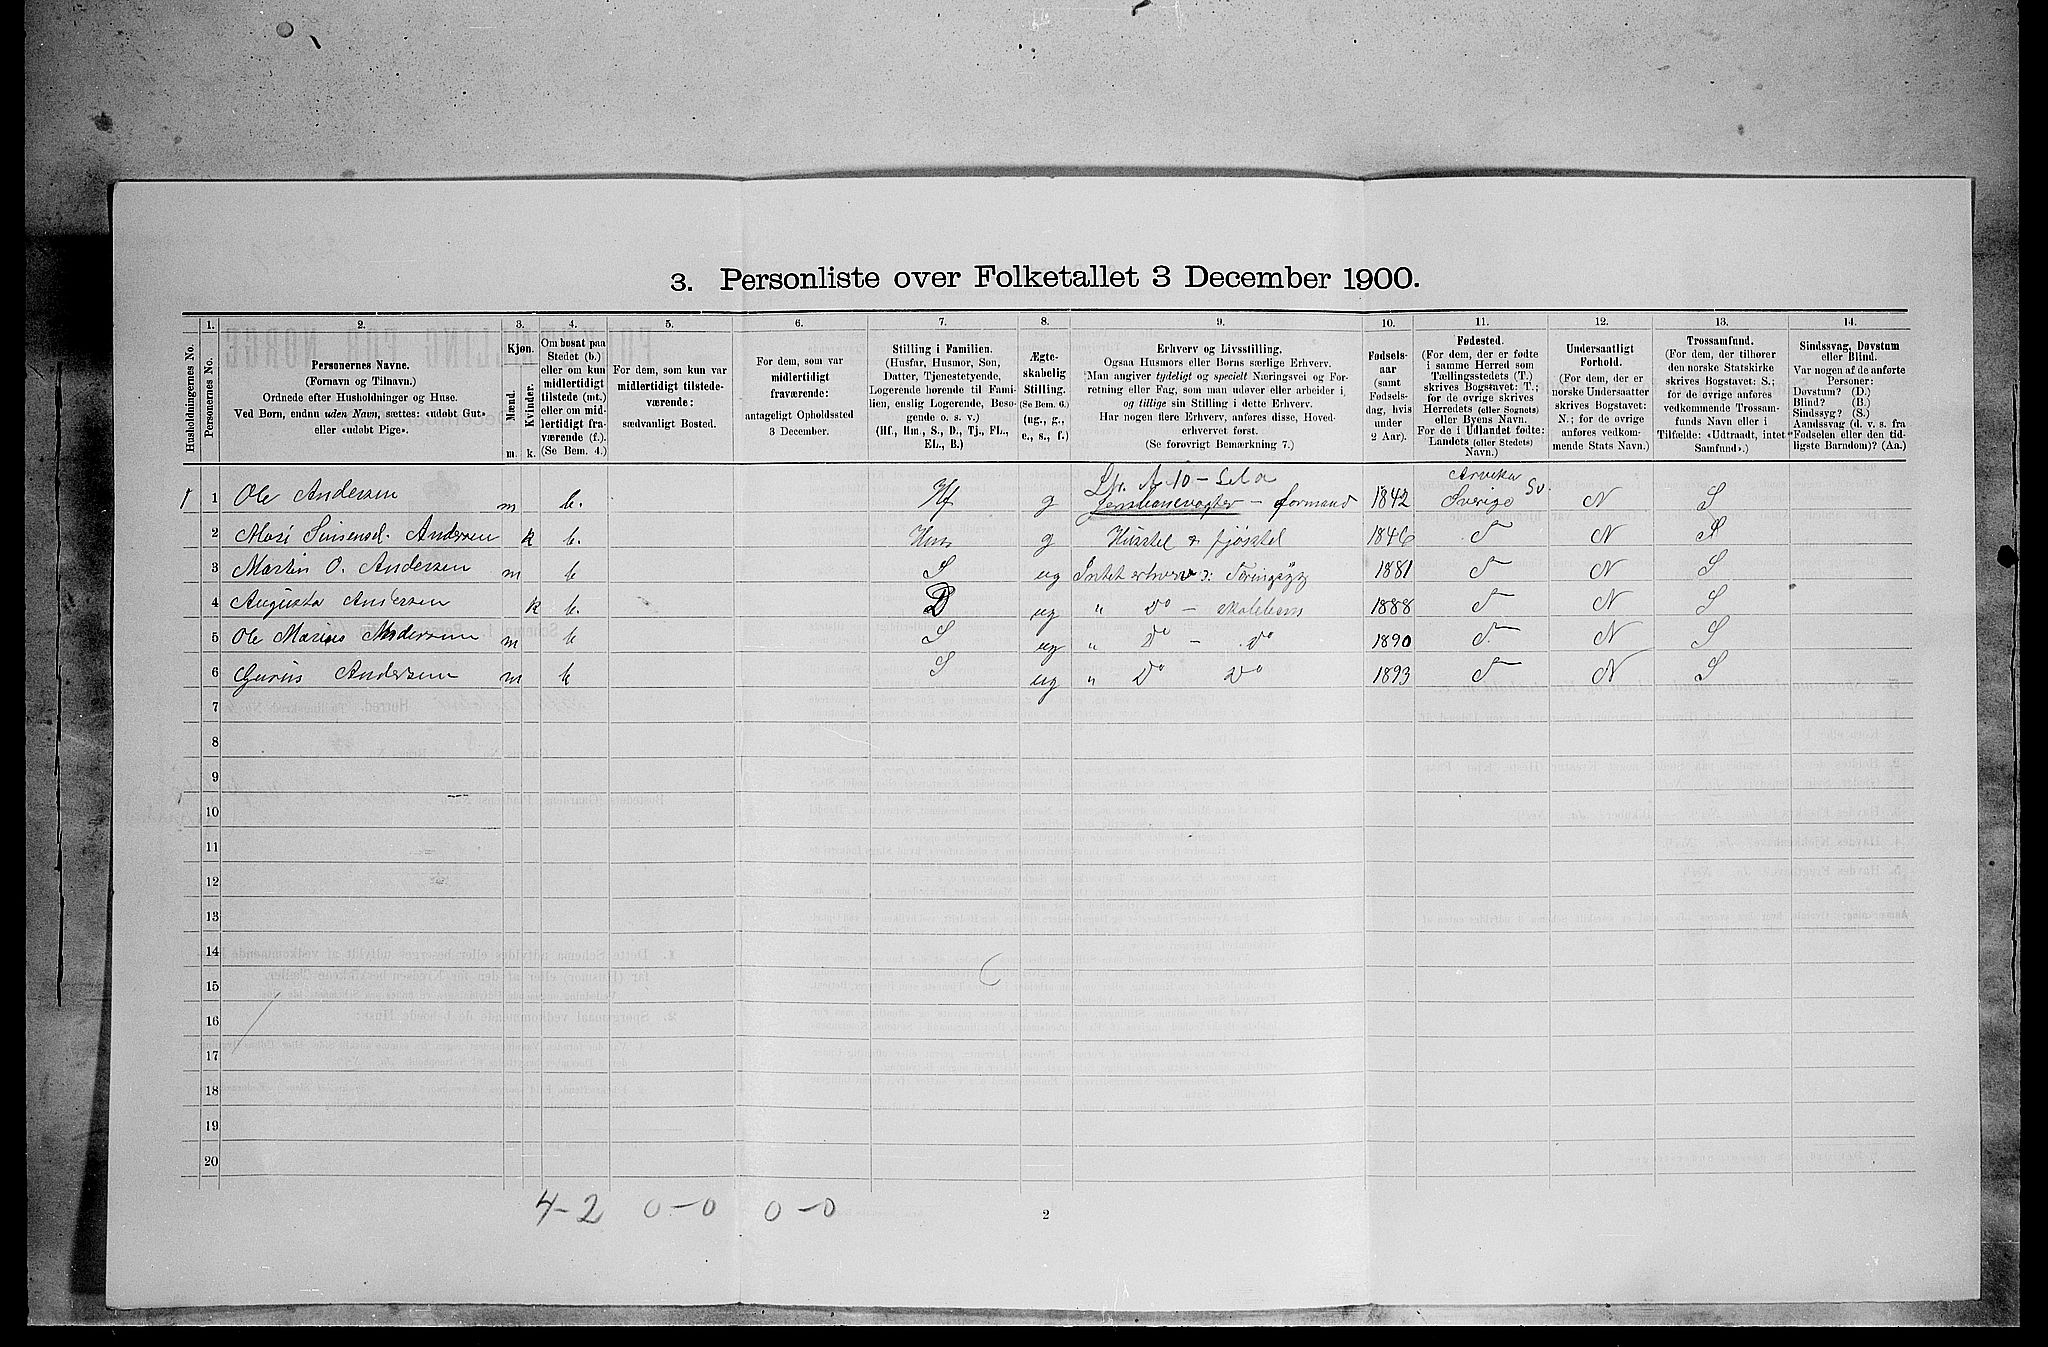 3. Personliste over Folketallet 3 December 1900.
Husholdningernes No.
1. Personernes No.
2. Personernes Navne.
(Fornavn og Tilnavn.)
Ordnede efter Husholdninger og Huse.
Ved Børn, endnu uden Navn, sættes: «udøbt Gut»
eller «udøbt Pige».
3. Kjøn.
Mænd. m.
Kvinder. k.
4. Om bosat paa
Stedet (b.)
eller om kun
midlertidigt
tilstede (mt.)
eller om mid-
lertidigt fra-
værende (f.).
(Se Bem. 4.)
5. For dem, som kun var
midlertidigt tilstede-
værende:
sædvanligt Bosted.
6. For dem, som var
midlertidigt
fraværende:
antageligt Opholdssted
3 December.
7. Stilling i Familien.
(Husfar, Husmor, Søn,
Datter, Tjenestetyende,
Logerende hørende til Fami-
lien, enslig Logerende, Besø-
gende o. s. v.)
(Hf., Hm., S., D., Tj., FL.,
EL., B.)
8. Ægte-
skabelig
Stilling.
(Se Bem. 6.)
(ug., g.,
e., s., f.)
9. Erhverv og Livsstilling.
Ogsaa Husmors eller Børns særlige Erhverv.
Man angiver tydeligt og specielt Næringsvei og For-
retning eller Fag, som man udøver eller arbeider i,
og tillige sin Stilling i dette Erhverv.
Har nogen flere Erhverv, anføres disse, Hoved-
erhvervet først.
(Se forøvrigt Bemærkning 7.)
10. Fødsels-
aar
(samt
Fødsels-
dag, hvis
under
2 Aar).
11. Fødested.
(For dem, der er fødte
i samme Herred som
Tællingsstedets (T.)
skrives Bogstavet: T.;
for de øvrige skrives
Herredets (eller Sognets)
eller Byens Navn.
For de i Udlandet fødte:
Landets (eller Stedets)
Navn.)
12. Undersaatligt
Forhold.
(For dem, der er
norske Undersaatter
skrives Bogstavet:
N.; for de øvrige
anføres vedkom-
mende Stats Navn.)
13. Trossamfund.
(For dem, der tilhører
den norske Statskirke
skrives Bogstavet: S.;
for de øvrige anføres
vedkommende Trossam-
funds Navn eller i
Tilfælde: «Udtraadt, intet
Samfund».)
14. Sindssvag, Døvstum
eller Blind.
Var nogen af de anførte
Personer:
Døvstum? (D.)
Blind? (B.)
Sindssyg? (S.)
Aandssvag (d. v. s. fra
Fødselen eller den tid-
ligste Barndom)? (Aa.)
1 1 Ole Andersen m b. Hf g formand 1842 Arvika Sverige Sv. N S
2 Andersen k b. Hm g 1846 T N S
3 Martin O. Andersen m b S ug Intet erhverv 1881 T N S
4 Augusta Andersen k b. D ug " Do - skolebarn 1888 T N S
5 Ole Marius Andersen m b S ug " Do - Do 1890 T N S
6 Andersen m b S ug " Do Do 1893 T N S
7
8
9
10
11
12
13
14
15
16
17
18
19
20
4-2 0-0 0-0
2